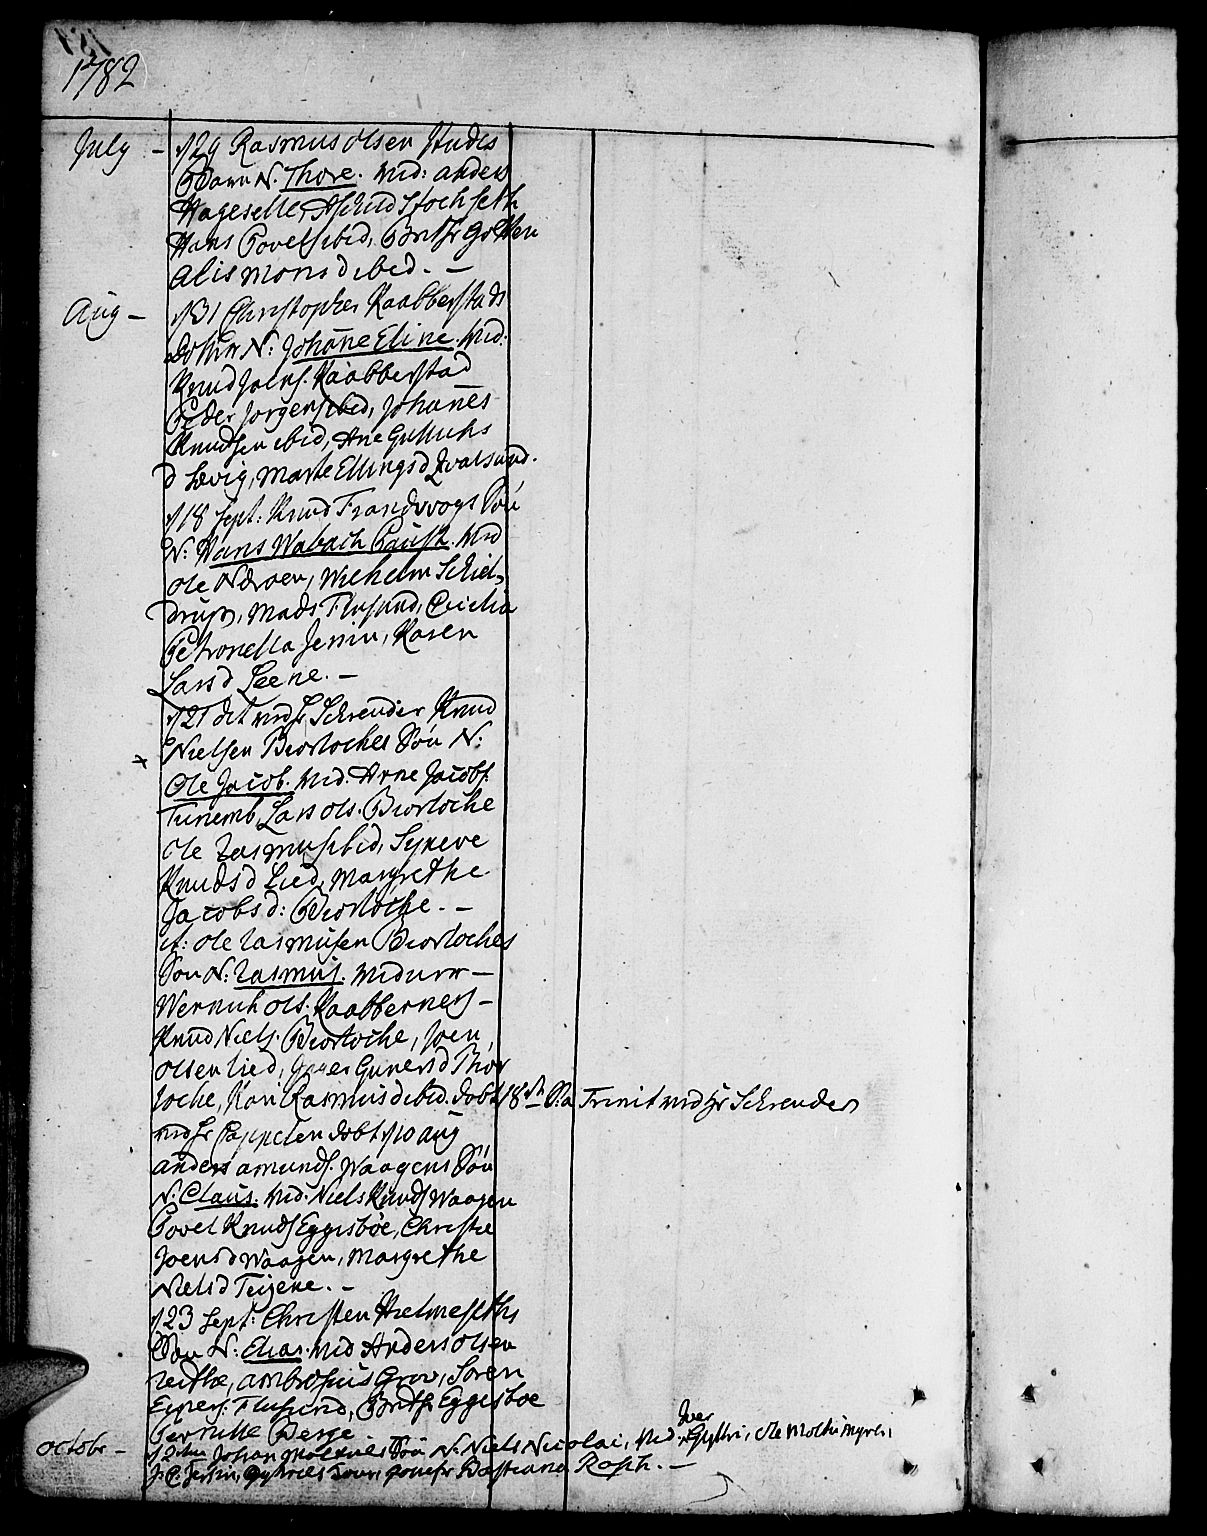 1782
July – d 29 Rasmus Olsen Studs
Barn N. Thore. Wid: anders
Hageselle, Aslud Stochseth
Hans Povels ibid, Goksøen
Alis Mons d ibid. –
Aug – d 31 Christopher Raabberstads
Dotter N: Johanne Eline. Wid:
Knud Joens. Raabberstad
Peder Jørgens ibid, Johannes
Knudsen ibid, Ane Gulluchs
d Løvig, Marte Ellings d Qvalsund.
d 18 Sept: Knud Frandvogs Søn
N: Hans Wabach Paust. Wid
Ole Nærøen, Wilhelm Schiel-
drup, Mads Flusund, Cicilia
Petronella Jenin, Karen
Lars d Leene. –
d 21 dt ved Hr Schreuder Knud
Nielsen Biorloches Søn N:
Ole Jacob. Wid. Arne Jacobs.
Tunemb, Lars Ols. Biorloche
Ole Rasmus ibid, Syneve
Knuds d Lied, Margrethe
Jacobs d: Biorloche. –
it: Ole Rasmusen Biorloches
Søn N: Rasmus. Wid
Wernich Ols. Raabbernes –
Knud Niels. Biorloche, Joen
Olsen Lied, Guners d Biør
loche, Kari Rasmus d ibid. Døbt 18de S: a Trinit ved Hr Schreuder
ved Hr Cappelen døbt d 10 aug
anders amunds. Waagens Søn
N. Claus. Wid. Niels Knuds Waagen
Povel Knuds Eggisbøe, Christie
Joens d Waagen, Margrethe
Niels d Teigene. –
d 23 Sept: Christen Hielmeseths
Søn N: Elias. Wid Anders Olsen
ambrosius Grov, Søren
Flusund, Eggisboe
Pernille Berge
Iver
octobr – d 2 Johan Moldtues Søn N: Niels Nicolai, Wid. Gythri, Ole Molthe Myrlri
J. C. Jenin, Bastiana Rash. –